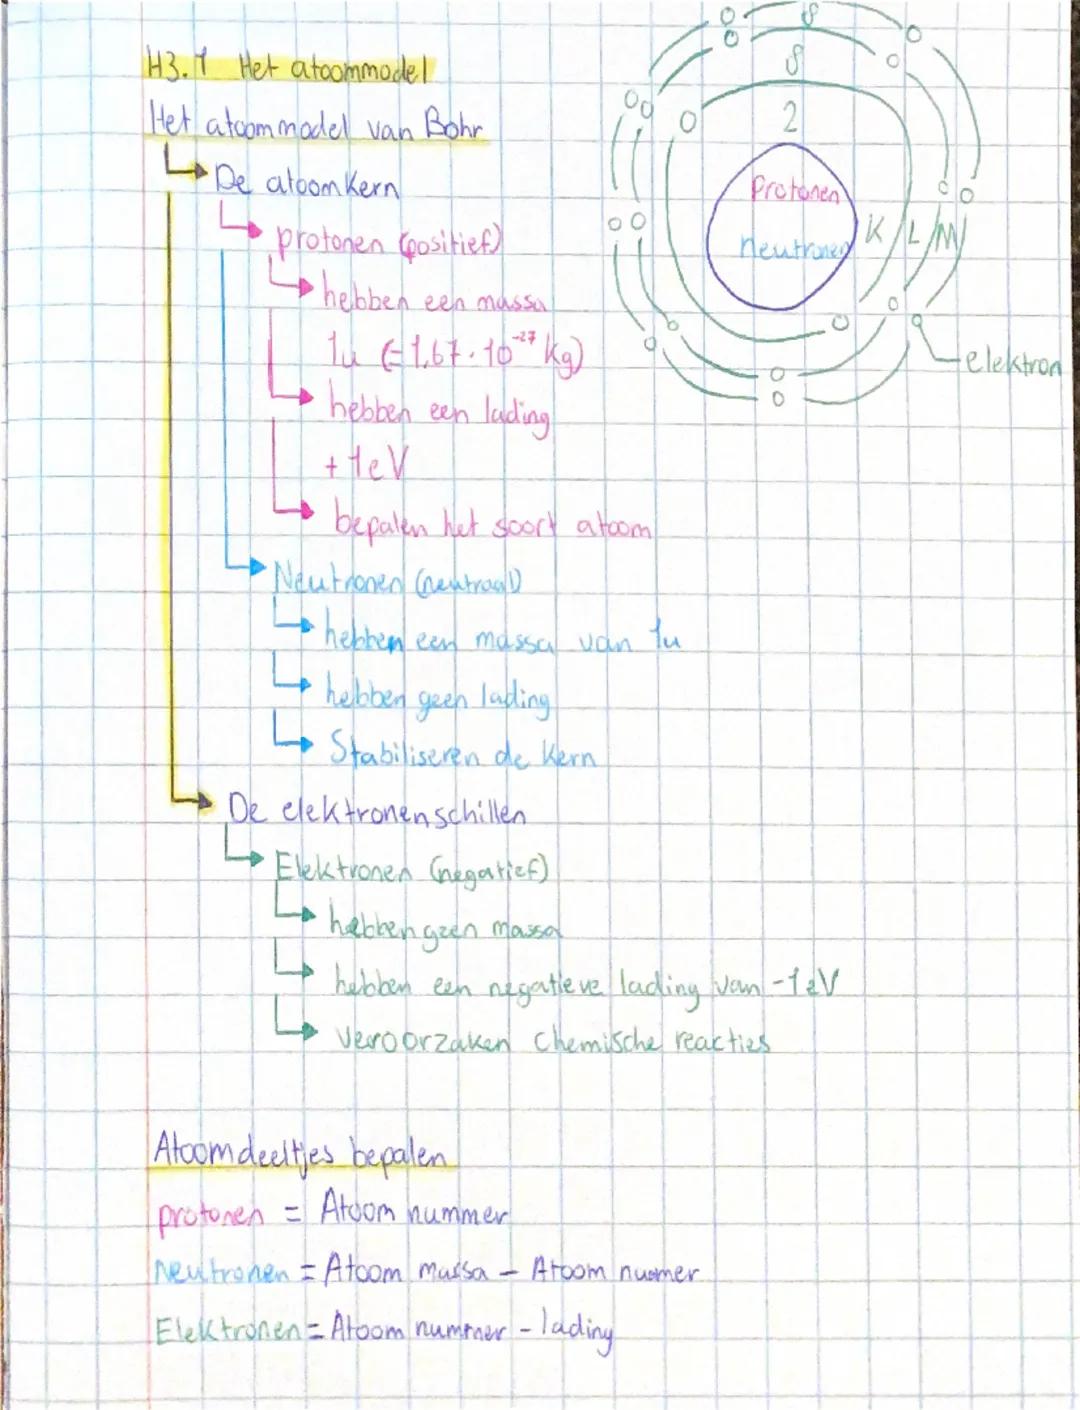 H3.1 Het atoommodel
Het atoommodel van Bohr
De atoomkern
protonen (positief)
hebben een massa
1u (=1,67 · 10⁻²⁷ kg)
hebben een lading
+1eV
bepalen het soort atoom
Neutronen (neutraal)
hebben een massa van 1u
hebben geen lading
Stabiliseren de kern
De elektronenschillen
Elektronen (negatief)
hebben geen massa
hebben een negatieve lading van -1eV
veroorzaken chemische reacties
8
8
2
Protonen
Neutronen
K L M
elektron
Atoomdeeltjes bepalen
protonen = Atoom nummer
Neutronen = Atoom massa - Atoom nummer
Elektronen = Atoom nummer - lading